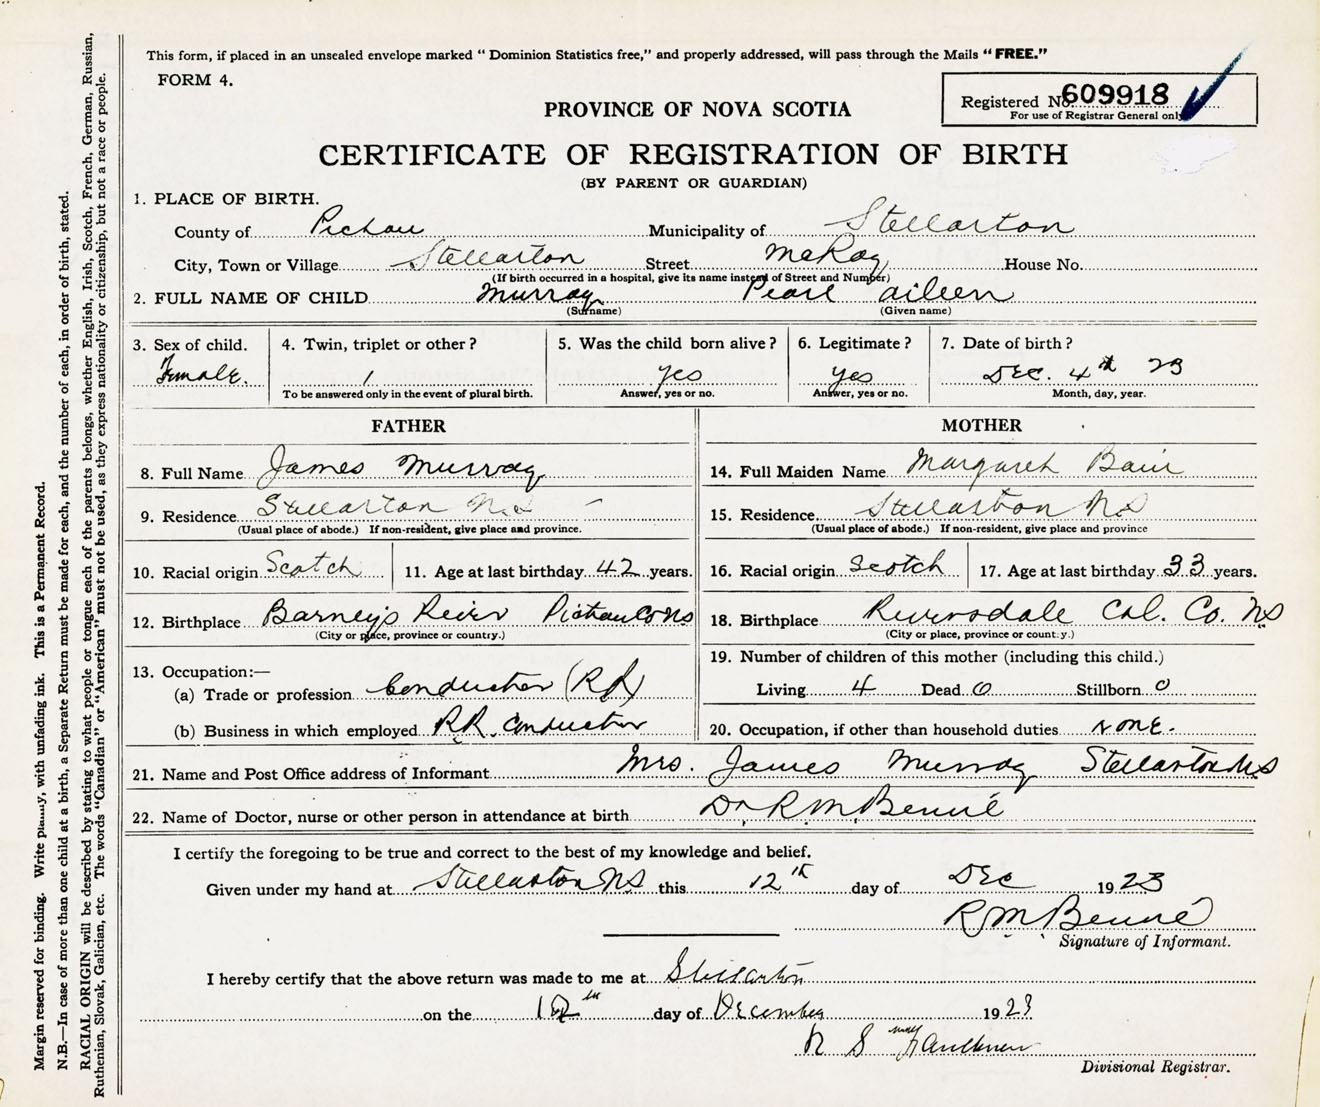 This form, if placed in an unsealed envelope marked “ Dominion Statistics free,” and properly addressed, will pass through the Mails “ FREE.”
FORM 4.
Registered No. 609918
For use of Registrar General only
PROVINCE OF NOVA SCOTIA
CERTIFICATE OF REGISTRATION OF BIRTH
(BY PARENT OR GUARDIAN)
1. PLACE OF BIRTH.
County of Pictou Municipality of Stellarton
City, Town or Village Stellarton Street McKay House No.
(If birth occurred in a hospital, give its name instead of Street and Number)
2. FULL NAME OF CHILD Murray Pearl Aileen
(Surname) (Given name)
3. Sex of child. 4. Twin, triplet or other? 5. Was the child born alive? 6. Legitimate? 7. Date of birth?
Female. 1 yes yes Dec. 4th 23
To be answered only in the event of plural birth. Answer, yes or no. Answer, yes or no. Month, day, year.
FATHER MOTHER
8. Full Name James Murray 14. Full Maiden Name Margaret
9. Residence Stellarton N.S 15. Residence Stellarton NS
(Usual place of abode.) If non-resident, give place and province. (Usual place of abode.) If non-resident, give place and province
10. Racial origin Scotch 11. Age at last birthday 42 years. 16. Racial origin Scotch 17. Age at last birthday 33 years.
12. Birthplace Barney's River Pictou Co NS 18. Birthplace Riversdale Col. Co. NS
(City or place, province or country.) (City or place, province or country.)
13. Occupation:— 19. Number of children of this mother (including this child.)
(a) Trade or profession Conductor (RR) Living 4 Dead 0 Stillborn 0
(b) Business in which employed RR. Conductor 20. Occupation, if other than household duties None.
21. Name and Post Office address of Informant Mrs. James Murray Stellarton NS
22. Name of Doctor, nurse or other person in attendance at birth Dr R M Benvie
I certify the foregoing to be true and correct to the best of my knowledge and belief.
Given under my hand at Stellarton NS this 12th day of Dec 1923
R M Benvie
Signature of Informant.
I hereby certify that the above return was made to me at Stellarton
on the 12th day of December 1923
Faulkner
Divisional Registrar.
Margin reserved for binding. Write plainly, with unfading ink. This is a Permanent Record.
N.B.—In case of more than one child at a birth, a Separate Return must be made for each, and the number of each, in order of birth, stated.
RACIAL ORIGIN will be described by stating to what people or tongue each of the parents belongs, whether English, Irish, Scotch, French, German, Russian,
Ruthenian, Slovak, Galician, etc. The words “Canadian” or “American” must not be used, as they express nationality or citizenship, but not a race or people.